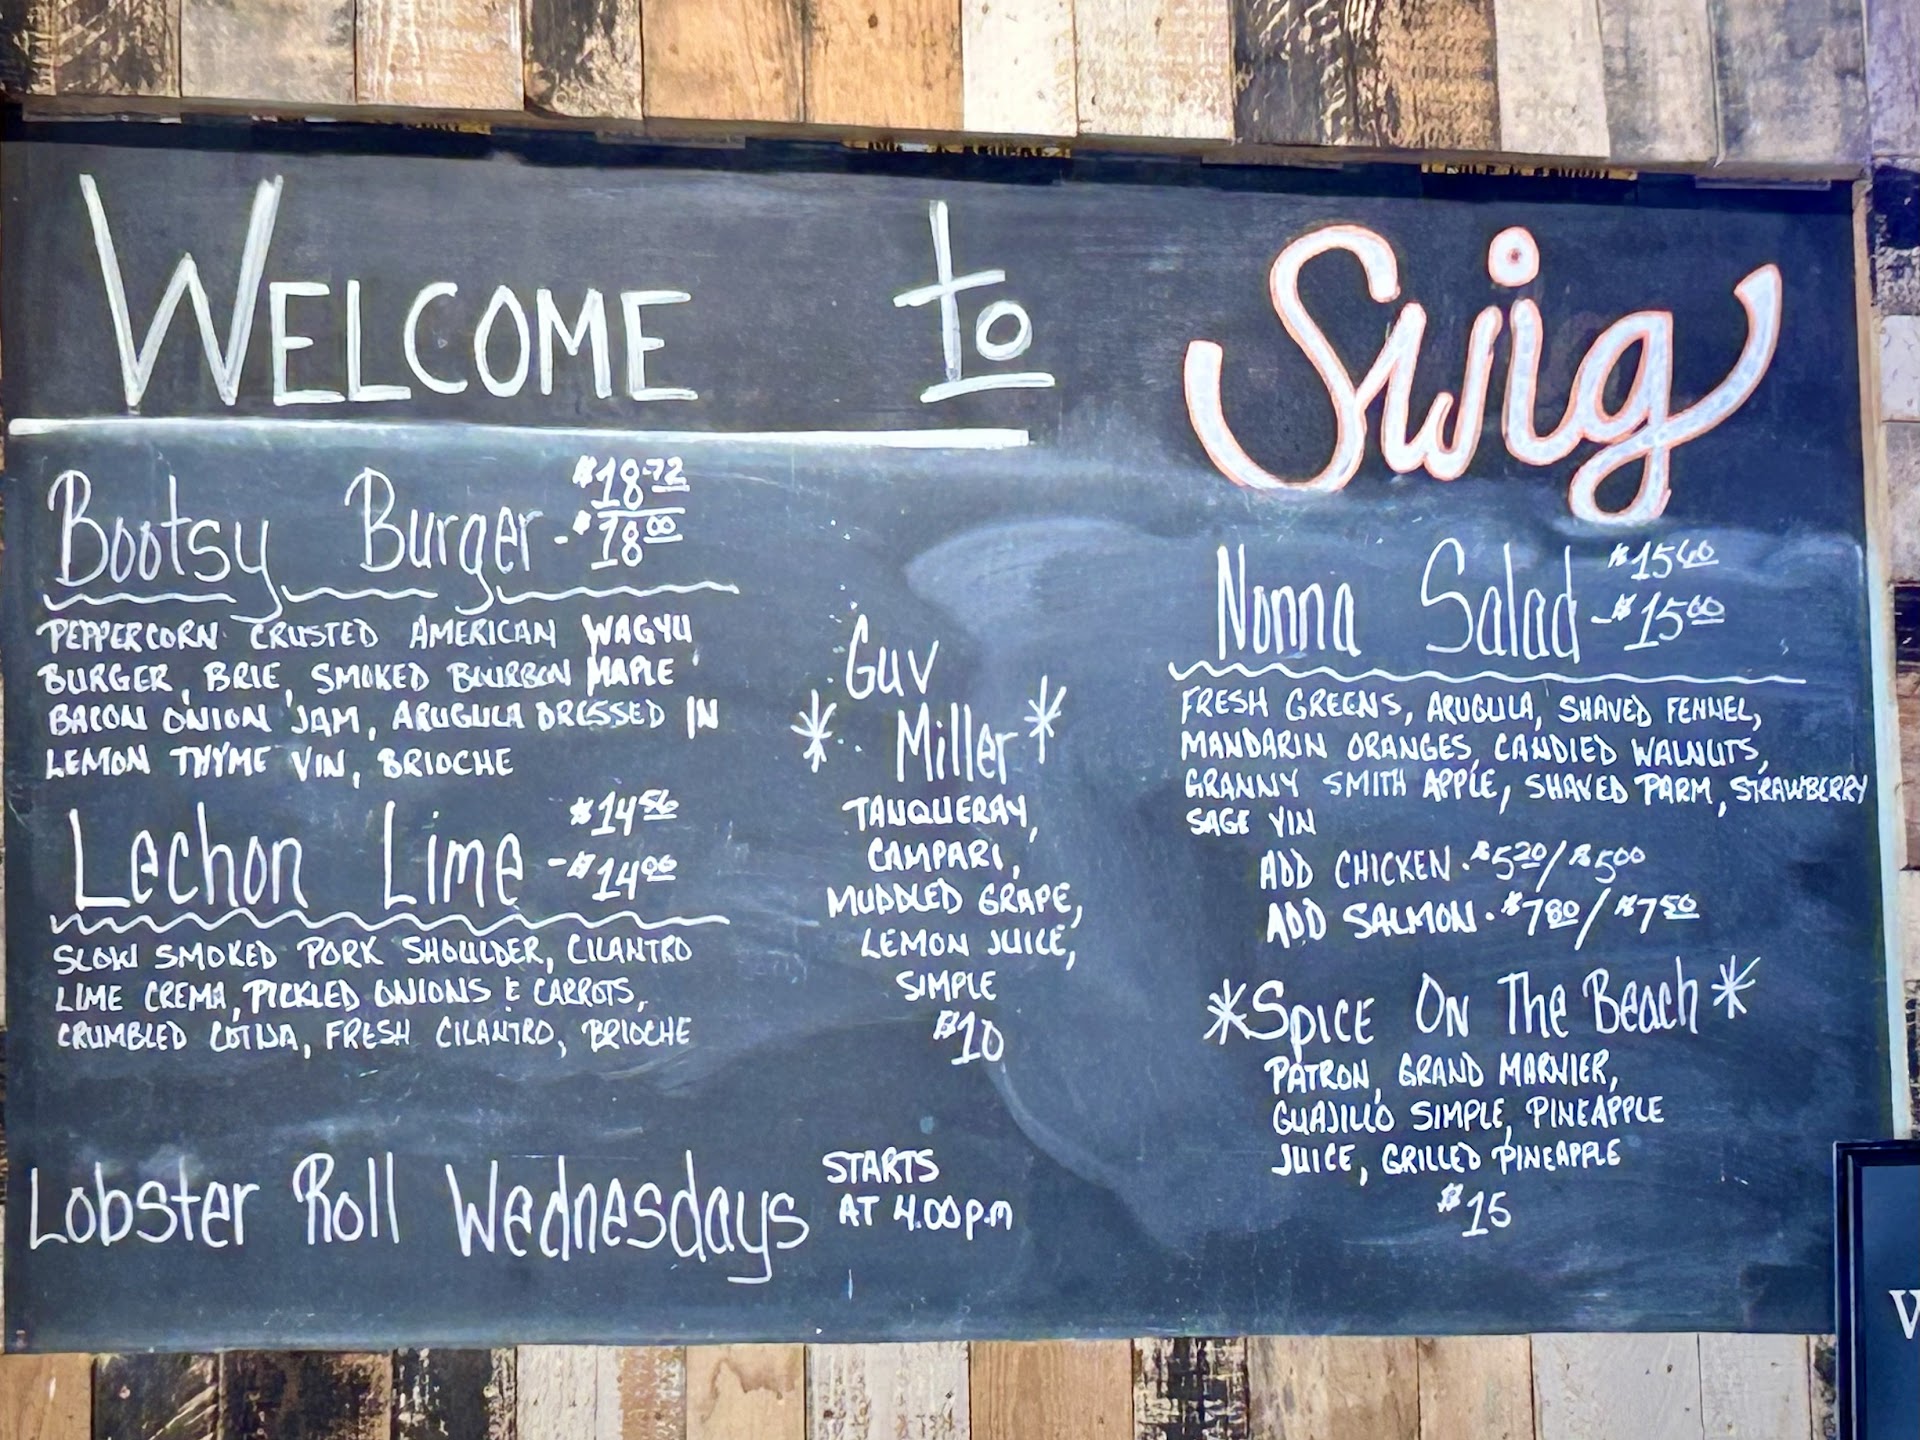 WELCOME to Swig
Bootsy Burger - $18.72
$18.00
PEPPERCORN CRUSTED AMERICAN WAGYU
BURGER, BRIE, SMOKED BOURBON MAPLE
BACON ONION JAM, ARUGULA DRESSED IN
LEMON THYME VIN, BRIOCHE
Lechon Lime - $14.56
$14.00
SLOW SMOKED PORK SHOULDER, CILANTRO
LIME CREMA, PICKLED ONIONS & CARROTS,
CRUMBLED COTIJA, FRESH CILANTRO, BRIOCHE
Guv
*Miller*
TANQUERAY,
CAMPARI,
MUDDLED GRAPE,
LEMON JUICE,
SIMPLE
$10
Nonna Salad - $15.60
$15.00
FRESH GREENS, ARUGULA, SHAVED FENNEL,
MANDARIN ORANGES, CANDIED WALNUTS,
GRANNY SMITH APPLE, SHAVED PARM, STRAWBERRY
SAGE VIN
ADD CHICKEN · $5.20/$5.00
ADD SALMON · $7.80/$7.50
*SPICE ON THE BEACH*
PATRON, GRAND MARNIER,
GUAJILLO SIMPLE, PINEAPPLE
JUICE, GRILLED PINEAPPLE
$15
Lobster Roll Wednesdays
STARTS
AT 4:00 p.m